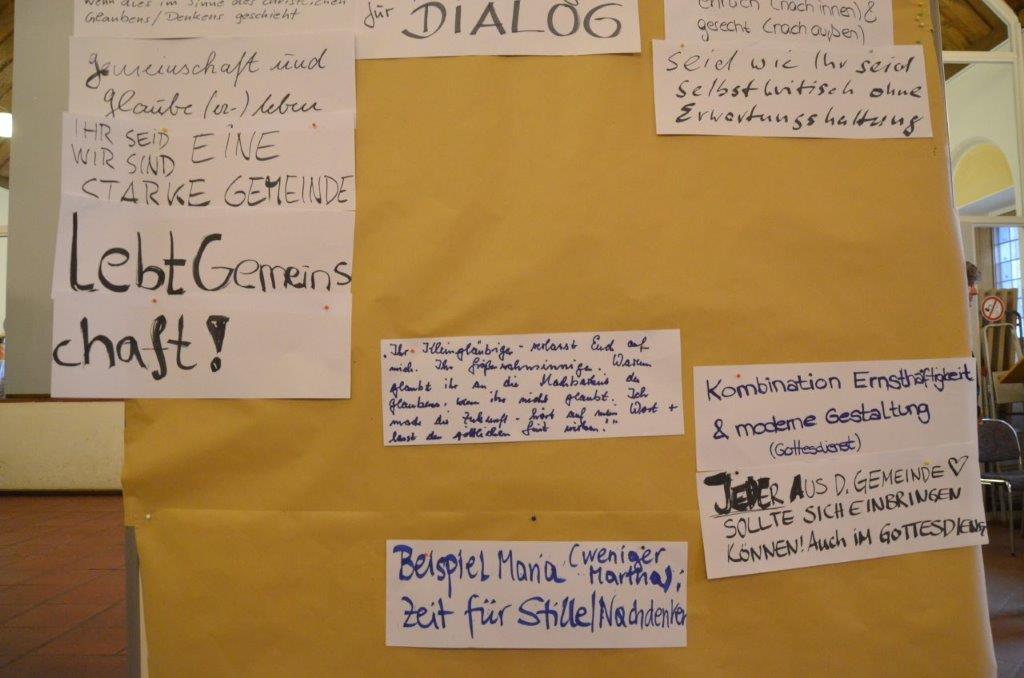 wenn dies im Sinne des christlichen
Glaubens/Denkens geschieht
gemeinschaft und
glaube (er-) leben
IHR SEID
WIR SIND EINE
STARKE GEMEINDE
Lebt Gemeins
chaft!
für DIALOG
ehrlich (nach innen) &
gerecht (nach außen)
Seid wie Ihr seid
Selbstkritisch ohne
Erwartungshaltung
"Ihr Kleingläubige - verlasst Euch auf
mich. Ihr Größenwahnsinnige. Warum
glaubt ihr an die Machbarkeit des
Glaubens, wenn ihr nicht glaubt. Ich
mache die Zukunft - hört auf mein Wort +
lasst den göttlichen Geist wirken."
Kombination Ernsthaftigkeit
& moderne Gestaltung
(Gottesdienst)
JEDER AUS D. GEMEINDE
SOLLTE SICH EINBRINGEN
KÖNNEN! Auch IM GOTTESDIENST
Beispiel Maria (weniger
Martha);
Zeit für Stille/Nachdenken